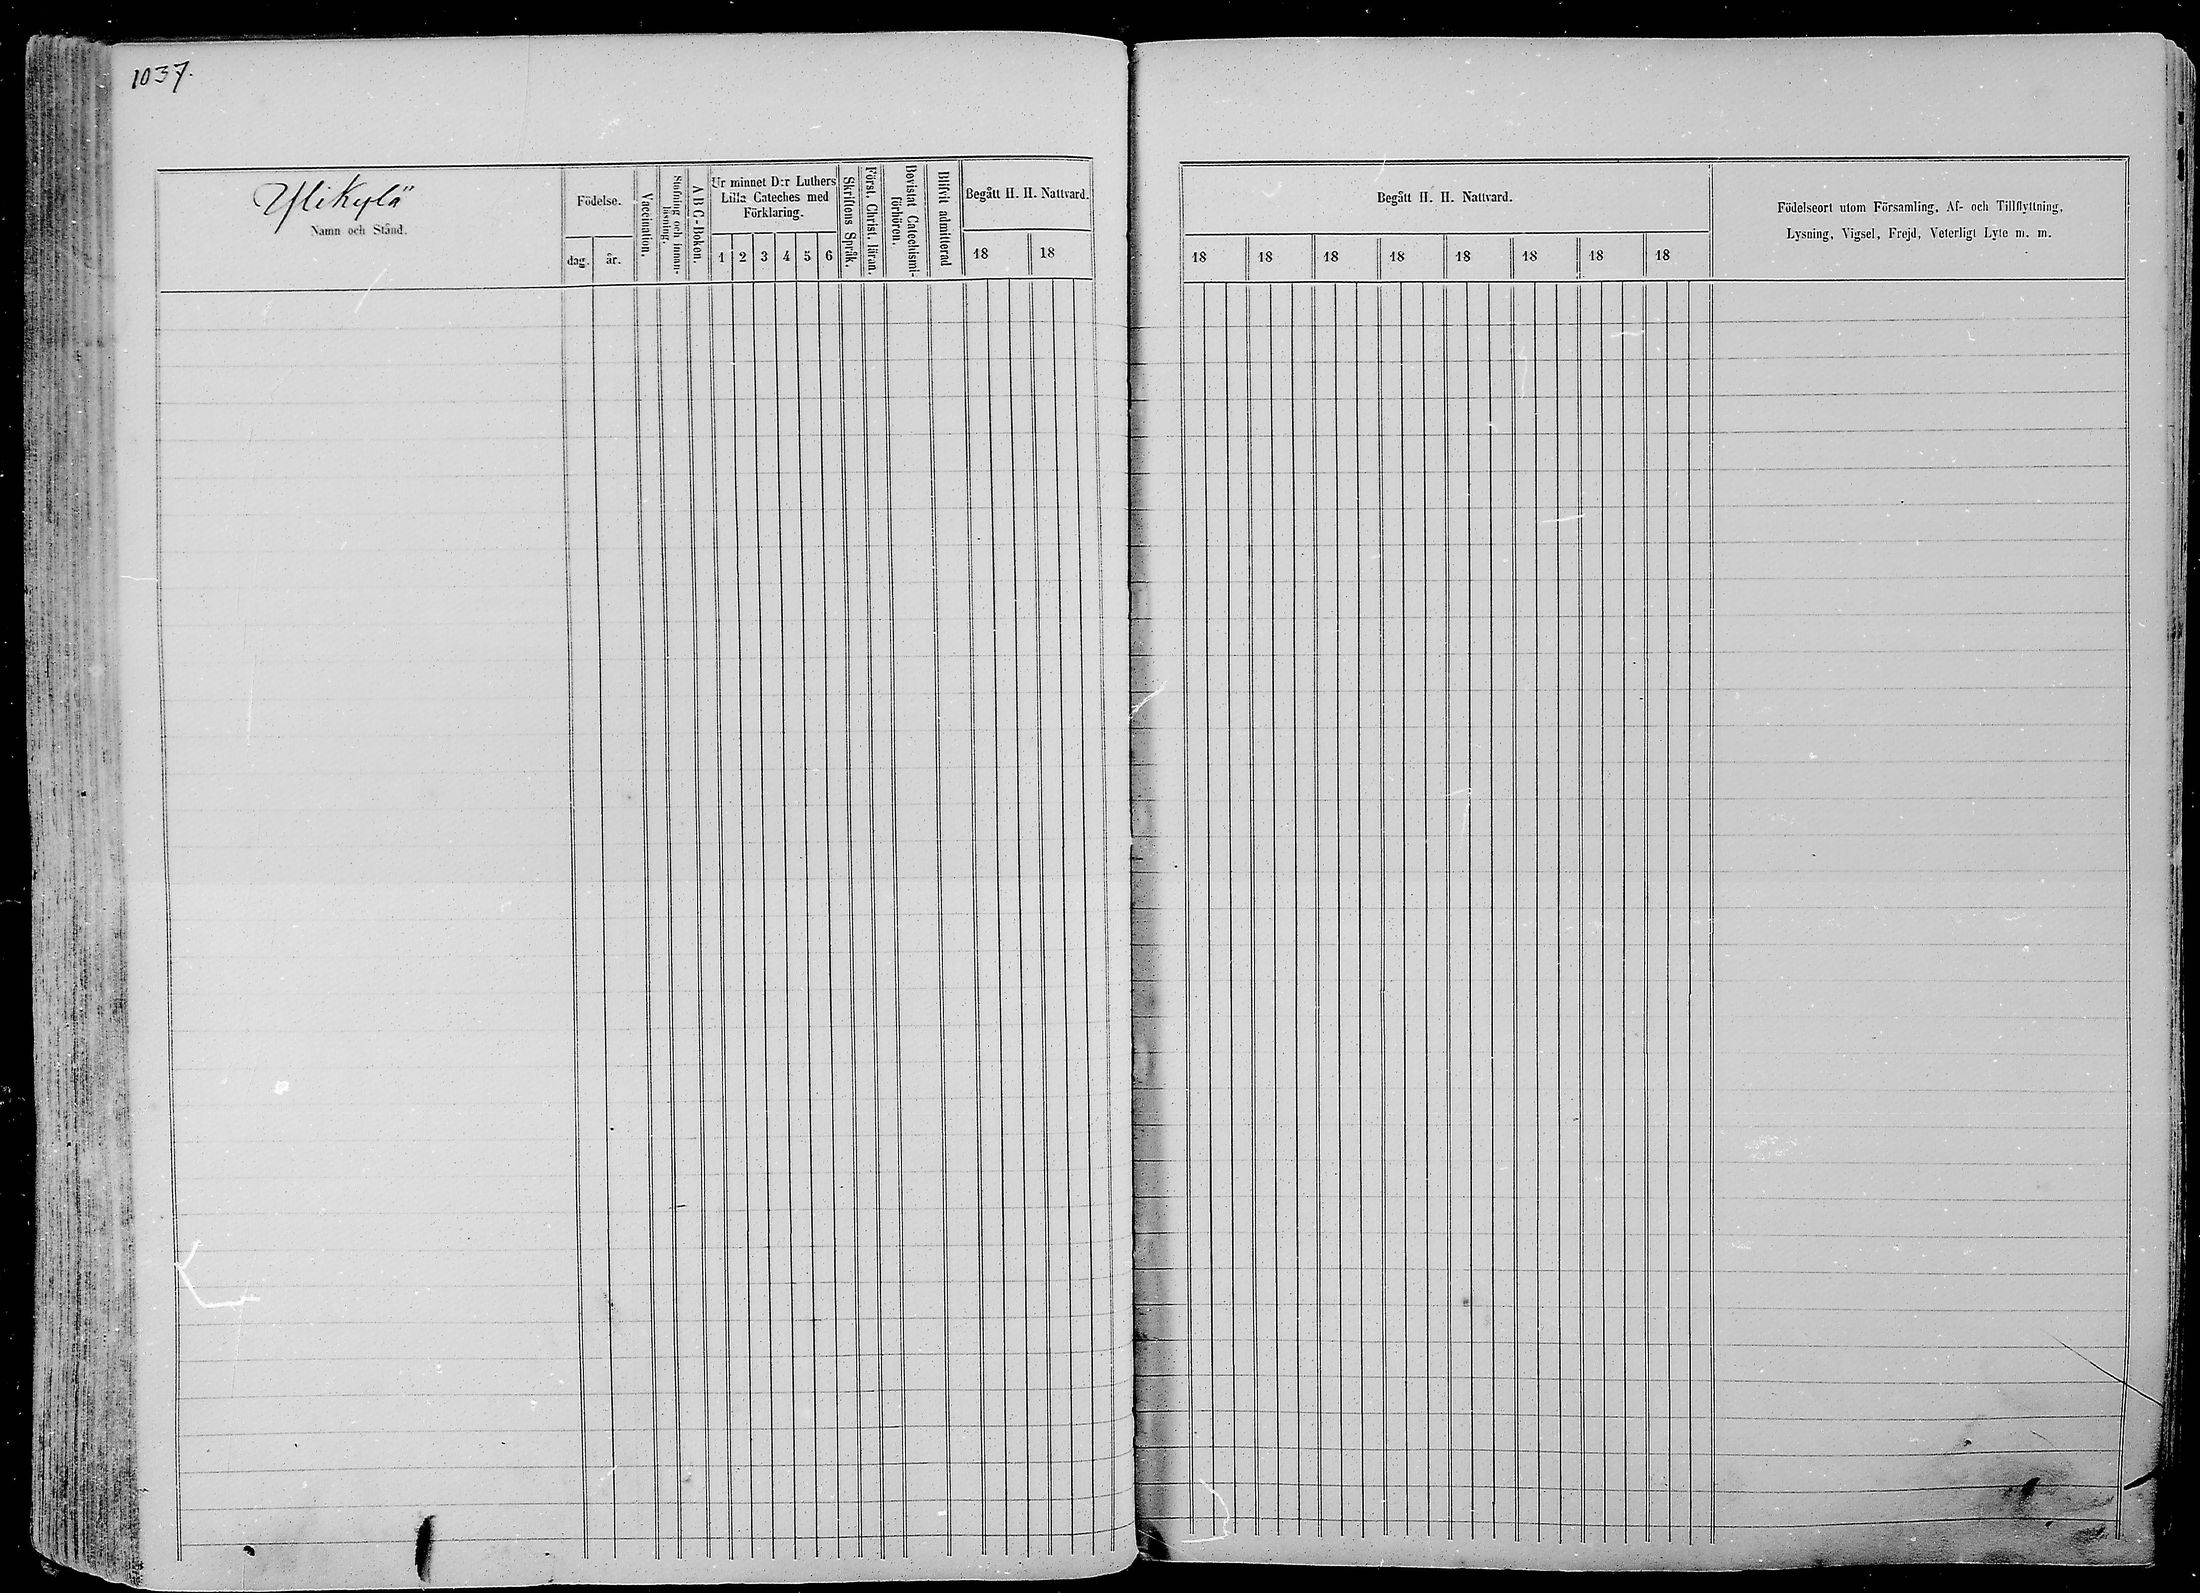 1037.
Ylikylä
Namn och Stånd.
Födelse.
dag.
år.
Vaccination.
Stafning och innan-
läsning.
A B C-Boken.
Ur minnet D:r Luthers
Lilla Cateches med
Förklaring.
1 2 3 4 5 6
Skriftens Språk.
Först. Christ. läran.
Bevistat Catechismi-
förhören.
Blifvit admitterad
Begått H. H. Nattvard.
18 18
Begått H. H. Nattvard.
18 18 18 18 18 18 18 18
Födelseort utom Församling, Af- och Tillflyttning,
Lysning, Vigsel, Frejd, Veterligt Lyte m. m.